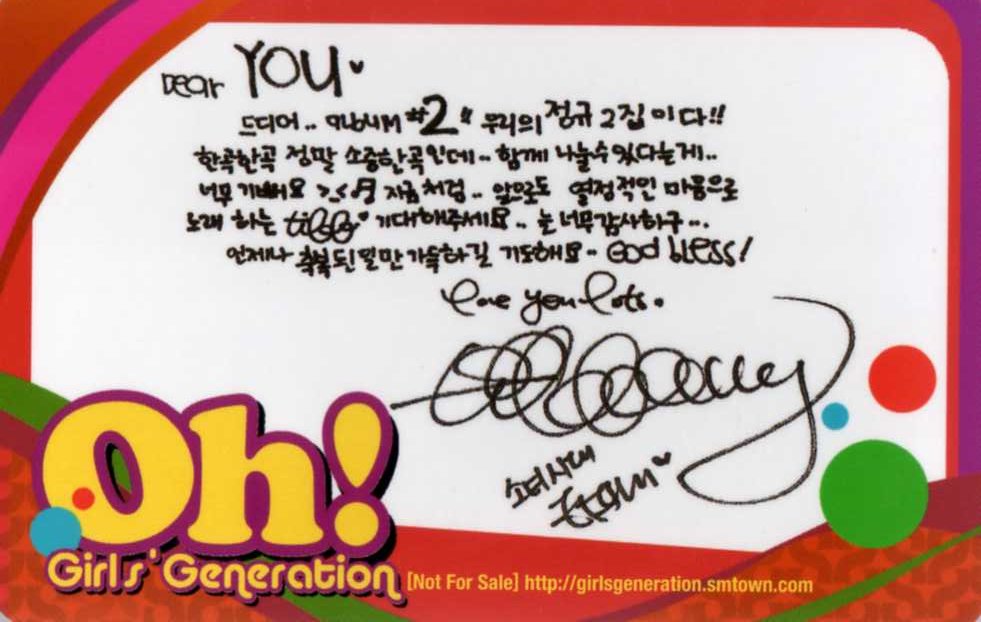 Dear YOU
드디어.. album #2" 우리의 정규 2집이다!!
한곡한곡 정말 소중한곡인데.. 함께 나눌수 있다는게..
너무 기뻐요 >.<♬ 지금처럼.. 앞으로도 열정적인 마음으로
노래 하는 기대해주세요.. 늘 너무감사하구...
언제나 축복된 일만 가득하길 기도해요.. God bless!
Love you lots.
소녀시대
Oh!
Girls' Generation
[Not For Sale] http://girlsgeneration.smtown.com